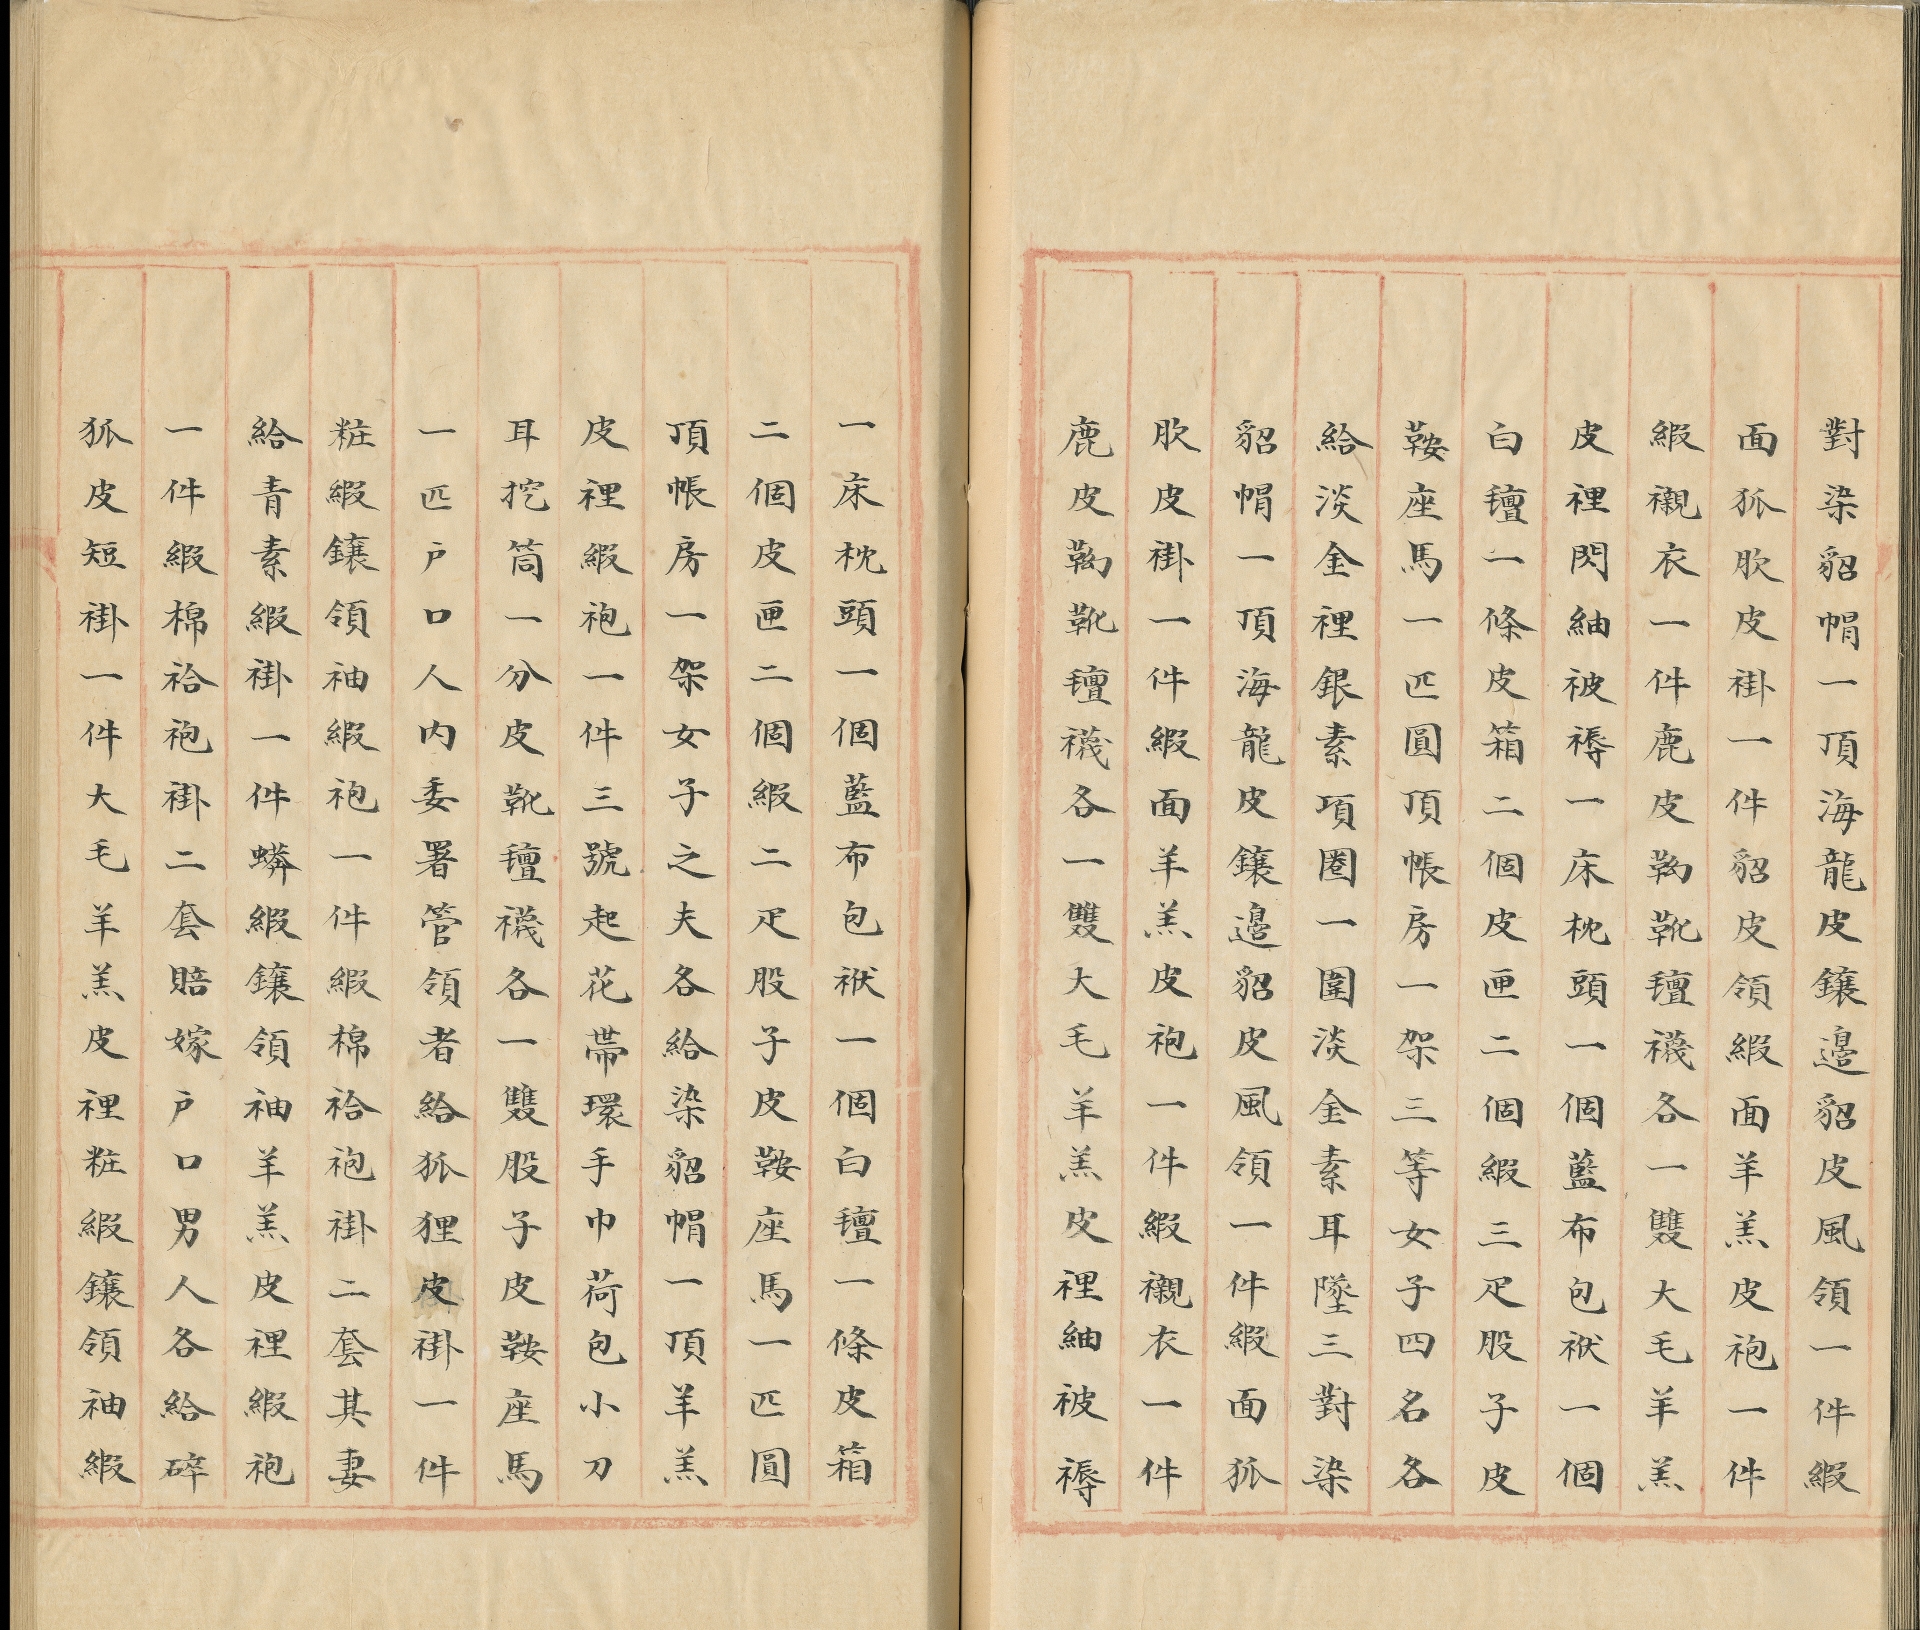 對染貂帽一頂海龍皮鑲邊貂皮風領一件緞
面狐肷皮褂一件貂皮領緞面羊羔皮袍一件
緞襯衣一件鹿皮靿靴氊襪各一雙大毛羊羔
皮裡閃紬被褥一床枕頭一個藍布包袱一個
白氊一條皮箱二個皮匣二個緞三疋股子皮
鞍座馬一匹圓頂帳房一架三等女子四名各
給淡金裡銀素項圈一圍淡金素耳墜三對染
貂帽一頂海龍皮鑲邊貂皮風領一件緞面狐
肷皮褂一件緞面羊羔皮袍一件緞襯衣一件
鹿皮靿靴氊襪各一雙大毛羊羔皮裡紬被褥
一床枕頭一個藍布包袱一個白氊一條皮箱
二個皮匣二個緞二疋股子皮鞍座馬一匹圓
頂帳房一架女子之夫各給染貂帽一頂羊羔
皮裡緞袍一件三號起花帶環手巾荷包小刀
耳挖筒一分皮靴氊襪各一雙股子皮鞍座馬
一匹戶口人内委署管領者給狐狸皮褂一件
粧緞鑲領袖緞袍一件緞棉袷袍褂二套其妻
給青素緞褂一件蟒緞鑲領袖羊羔皮裡緞袍
一件緞棉袷袍褂二套賠嫁戶口男人各給碎
狐皮短褂一件大毛羊羔皮裡粧緞鑲領袖緞